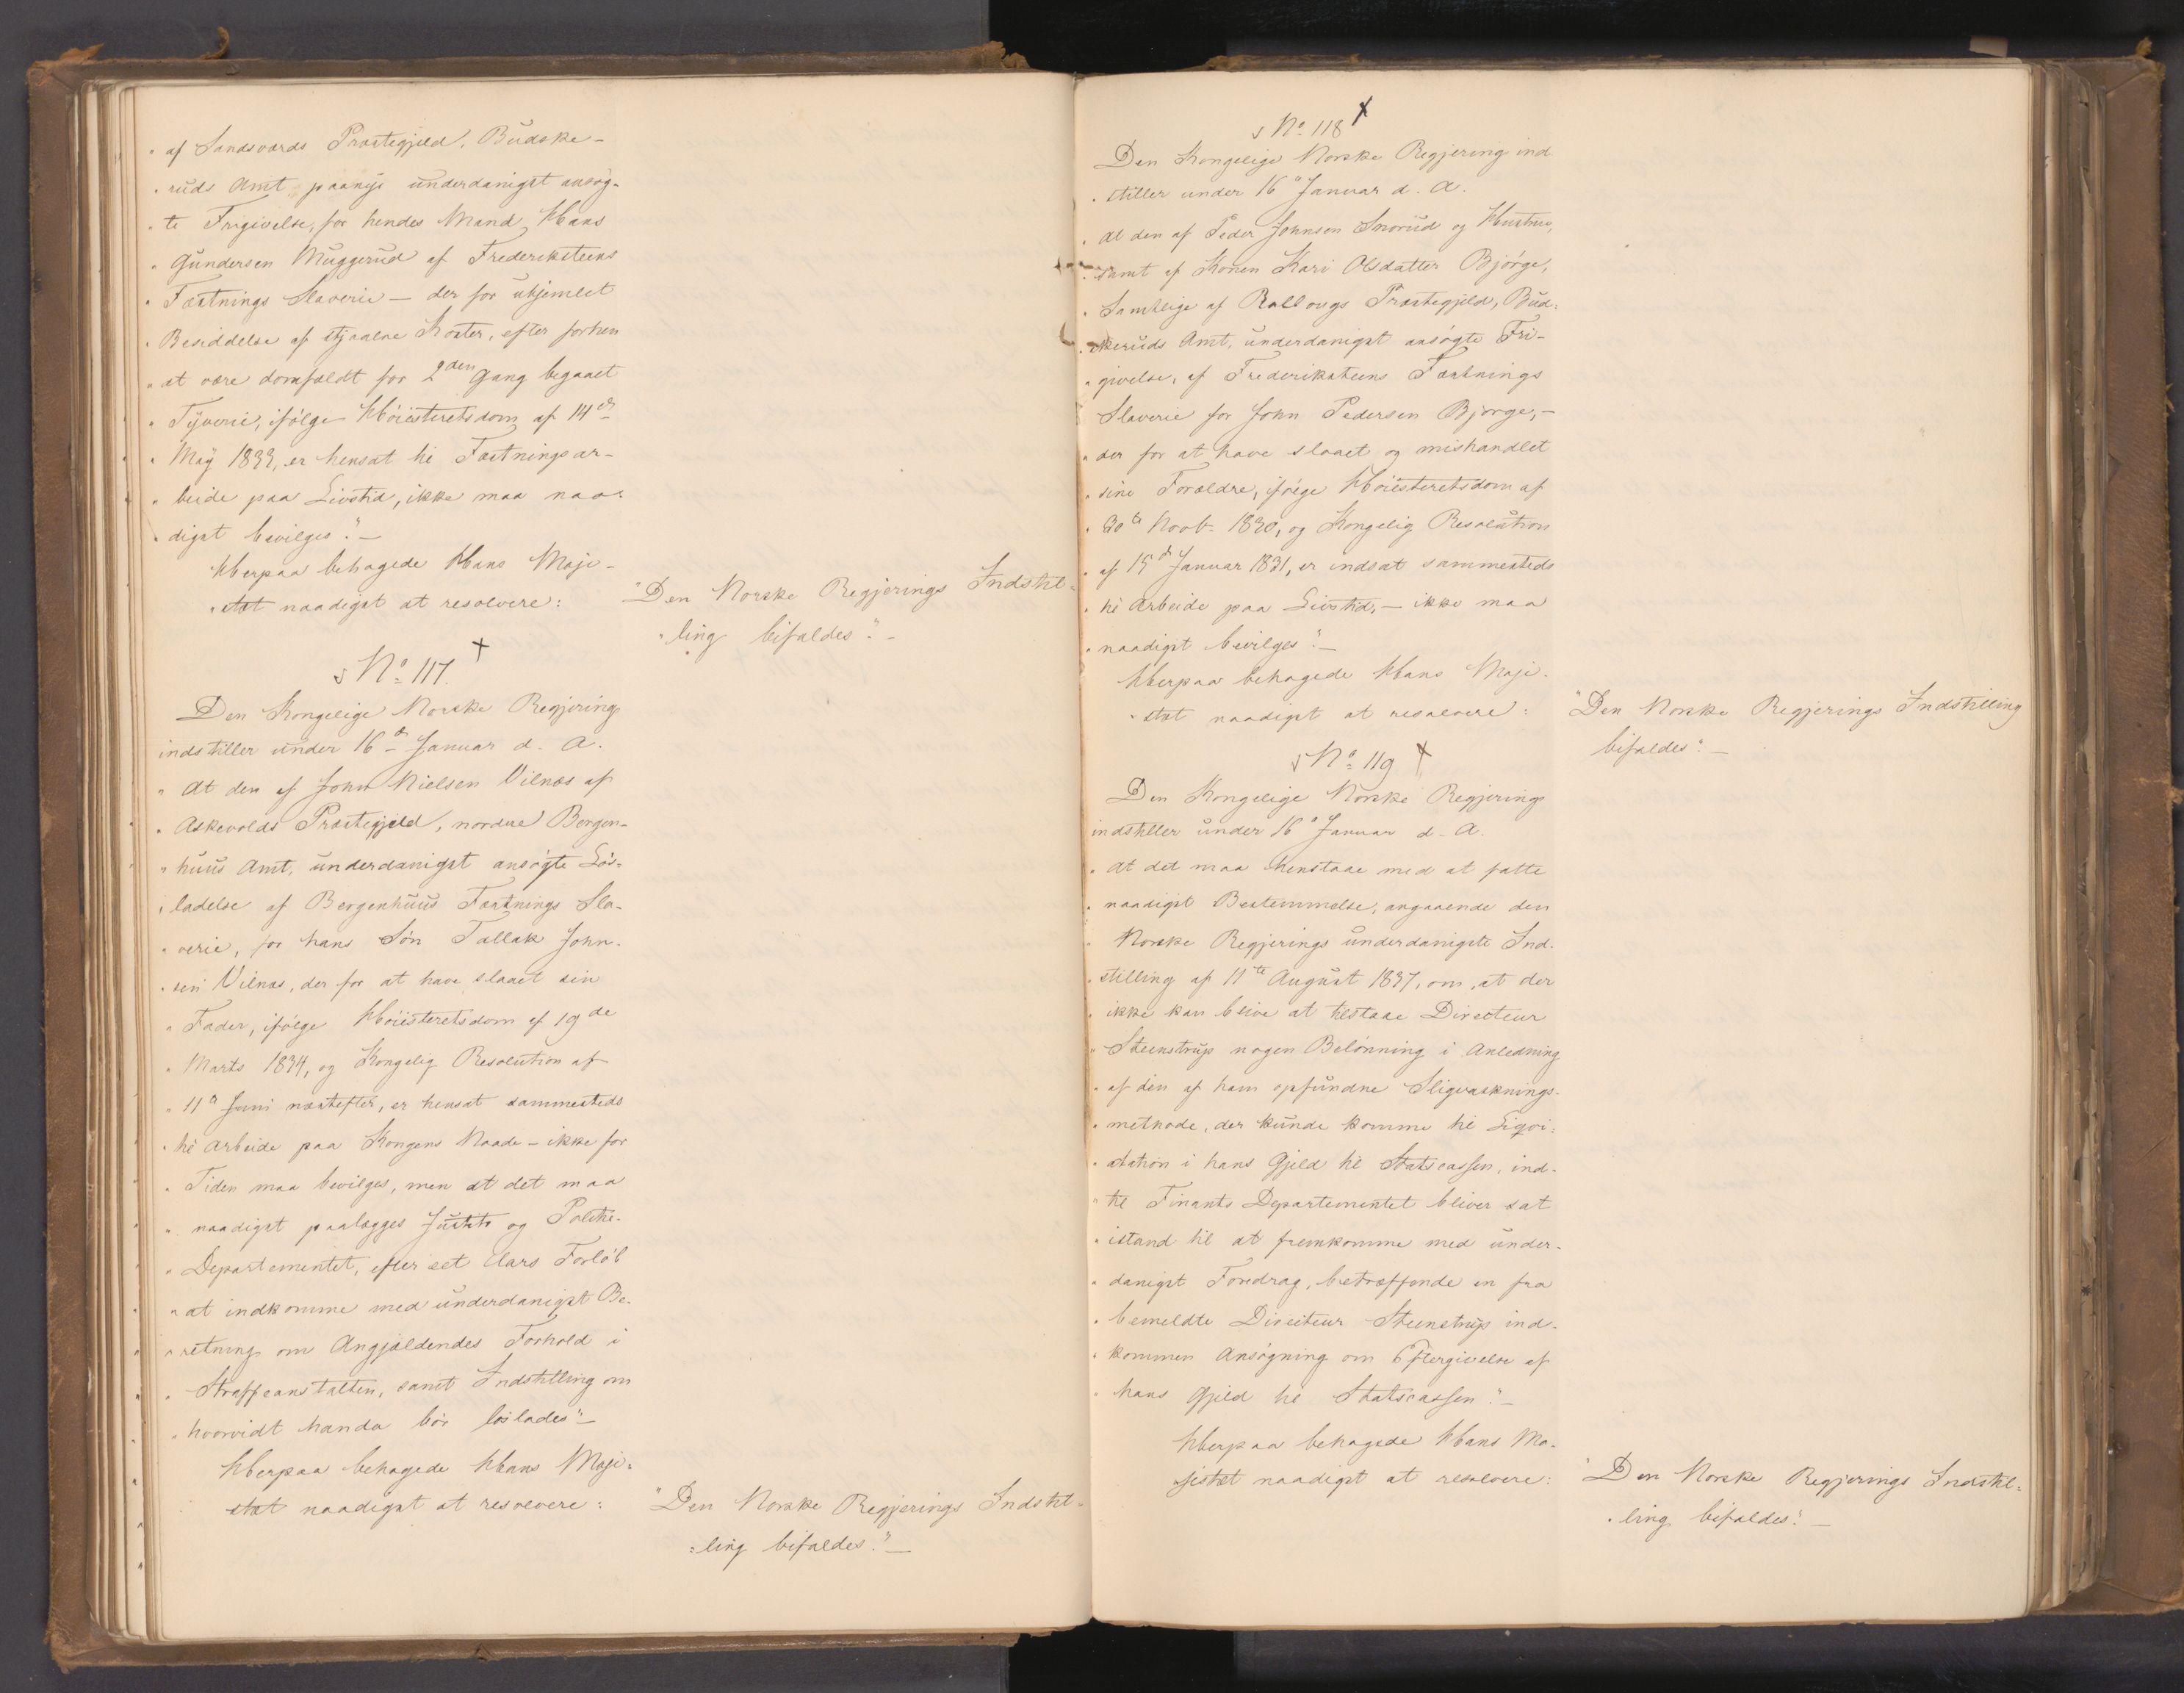 „ af Sandsværds Præstegjeld, Budske-
„ ruds Amt, paanye underdanigst ansøg-
„ te Frigivelse, for hendes Mand, Hans
„ Gundersen Muggerud af Frederiksteens
„ Fæstnings Slaverie — der for uhjemlet
„ Besiddelse af stjaalne Koster, efter forhen
„ at være domfældt for 2den Gang begaaet
„ Tyverie, ifølge Høiesteretsdom af 14de
„ May 1833, er hensat til Fæstningsar-
„ beide paa Livstid, ikke maa naa-
„ digst bevilges." —
Herpaa behagede Hans Maje-
„ stæt naadigst at resolvere:
"Den Norske Regjerings Indstil-
„ ling bifaldes." —
No 117.
Den Kongelige Norske Regjering
indstiller under 16de Januar d. A.
„ At den af John Nielsen Vilnæs af
„ Askevolds Præstegjeld, nordre Bergen-
„ huus Amt, underdanigst ansøgte Løs-
„ ladelse af Bergenhuus Fæstnings Sla-
„ verie, for hans Søn Tallak John-
„ sen Vilnæs, der for at have slaaet sin
„ Fader, ifølge Høiesteretsdom af 19de
„ Marts 1834, og Kongelig Resolution af
„ 11te Juni næstefter, er hensat sammesteds
„ til Arbeide paa Kongens Naade — ikke for
„ Tiden maa bevilges, men at det maa
„ naadigst paalægges Justits og Politie-
„ Departementet, efter eet Aars Forløb
„ at indkomme med underdanigst Be-
„ retning om Angjældendes Forhold i
„ Straffeanstalten, samt Indstilling om
„ hvorvidt handa bør løslades" —
Herpaa behagede Hans Maje-
stæt naadigst at resolvere:
"Den Norske Regjerings Indstil-
ling bifaldes." —
No 118
Den Kongelige Norske Regjering ind
„ stiller under 16de Januar d. A.
„ At den af Peder Johnsen Snorud og Hustru,
„ samt af Konen Kari Olsdatter Bjørge,
„ Samtlige af Rallougs Præstegjeld, Bud-
„ skeruds Amt, underdanigst ansøgte Fri-
„ givelse, af Frederiksteens Fæstnings
Slaverie for John Pedersen Bjørge, —
„ der for at have slaaet og mishandlet
„ sine Forældre, ifølge Høiesteretsdom af
„ 30te Novbr. 1830, og Kongelig Resolution
„ af 15de Januar 1831, er indsat sammesteds
„ til Arbeide paa Livstid, — ikke maa
„ naadigst bevilges". —
Herpaa behagede Hans Maje-
„ stæt naadigst at resolvere:
"Den Norske Regjerings Indstilling
bifaldes". —
No 119
Den Kongelige Norske Regjering
indstiller under 16de Januar d. A.
„ At det maa henstaae med at fatte
„ naadigst Bestemmelse, angaaende den
„ Norske Regjerings underdanigste Ind-
„ stilling af 11te August 1837, om, at der
„ ikke kan blive at tilstaae Directeur
„ Steenstrup nogen Belønning i Anledning
„ af den af ham opfundne Sligvasknings-
„ methode, der kunde komme til Liqvi-
„ dation i hans Gjeld til Statscassen, ind-
„ til Finants Departementet bliver sat
„ istand til at fremkomme med under-
„ danigst Foredrag, betræffende en fra
„ bemeldte Directeur Steenstrup ind-
„ kommen Ansøgning om Eftergivelse af
„ hans Gjeld til Statscassen." —
Herpaa behagede Hans Ma-
jestæt naadigst at resolvere:
"Den Norske Regjerings Indstil-
„ ling bifaldes." —